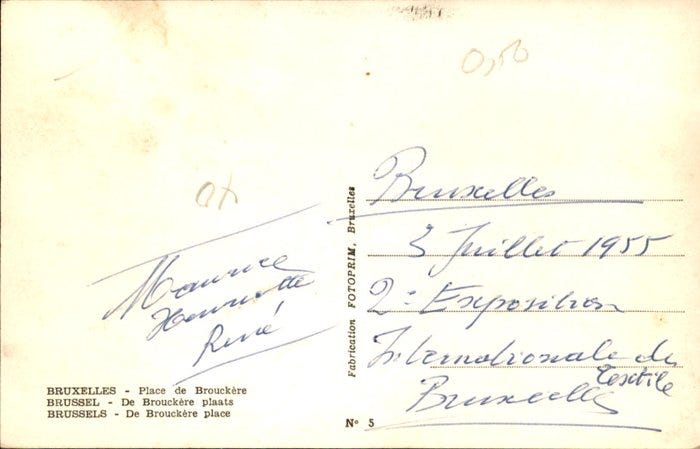 0,50
Bruxelles
3 Juillet 1955
2e Exposition
Internationale du
Textile
Bruxelles
Maurice
Henriette
René
Fabrication FOTOPRIM, Bruxelles
BRUXELLES - Place de Brouckère
BRUSSEL - De Brouckère plaats
BRUSSELS - De Brouckère place
No 5